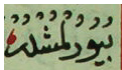 بُيُورُلمُشدُر